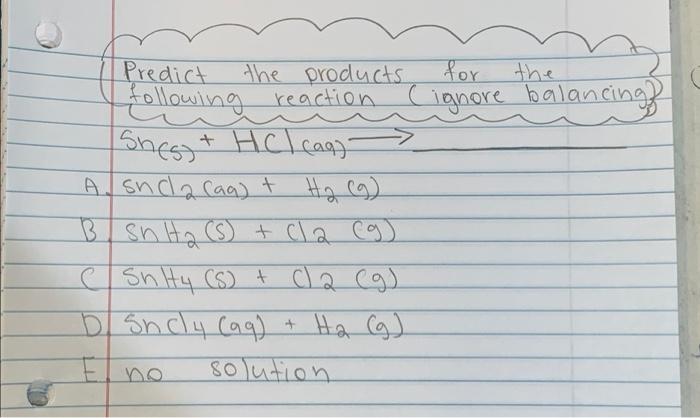 Predict the products for the
following reaction (ignore balancing)
Sn(s) + HCl(aq) → ____________
A. SnCl2(aq) + H2(g)
B. SnH2(s) + Cl2(g)
C. SnH4(s) + Cl2(g)
D. SnCl4(aq) + H2(g)
E. no solution